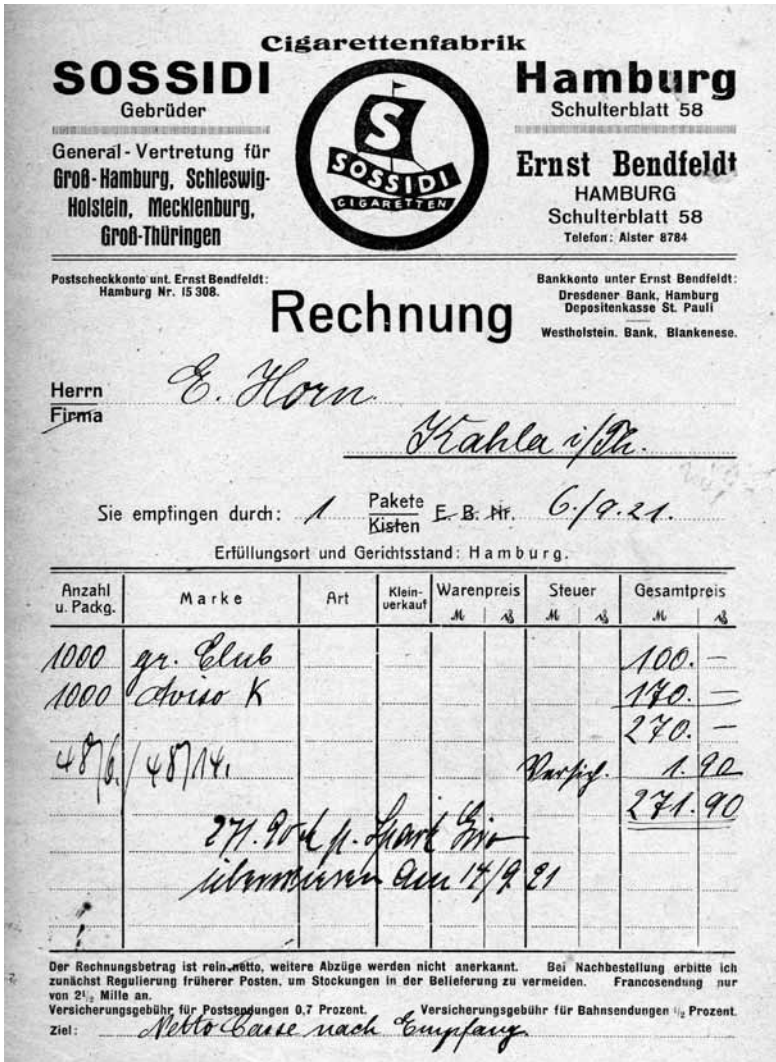 Cigarettenfabrik
SOSSIDI
Gebrüder
General-Vertretung für
Groß-Hamburg, Schleswig-
Holstein, Mecklenburg,
Groß-Thüringen
S
SOSSIDI
CIGARETTEN
Hamburg
Schulterblatt 58
Ernst Bendfeldt
HAMBURG
Schulterblatt 58
Telefon: Alster 8784
Postscheckkonto unt. Ernst Bendfeldt:
Hamburg Nr. 15308.
Rechnung
Bankkonto unter Ernst Bendfeldt:
Dresdener Bank, Hamburg
Depositenkasse St. Pauli
Westholstein. Bank, Blankenese.
Herrn E. Horn
Firma
Kahla i/Th.
Sie empfingen durch: 1 Pakete Kisten E. B. Nr. 6./9.21.
Erfüllungsort und Gerichtsstand: Hamburg.
Anzahl u. Packg. Marke Art Klein-verkauf Warenpreis Steuer Gesamtpreis
M ₰ M ₰ M ₰
1000 gr. Club 100.—
1000 Aviso K 170.—
270.—
Versich. 1.90
271.90
271.90 p. Giro
überwiesen am 14/9 21
Der Rechnungsbetrag ist rein netto, weitere Abzüge werden nicht anerkannt. Bei Nachbestellung erbitte ich
zunächst Regulierung früherer Posten, um Stockungen in der Belieferung zu vermeiden. Francosendung nur
von 2½ Mille an.
Versicherungsgebühr für Postsendungen 0,7 Prozent. Versicherungsgebühr für Bahnsendungen ½ Prozent.
Ziel: Netto Casse nach Empfang.